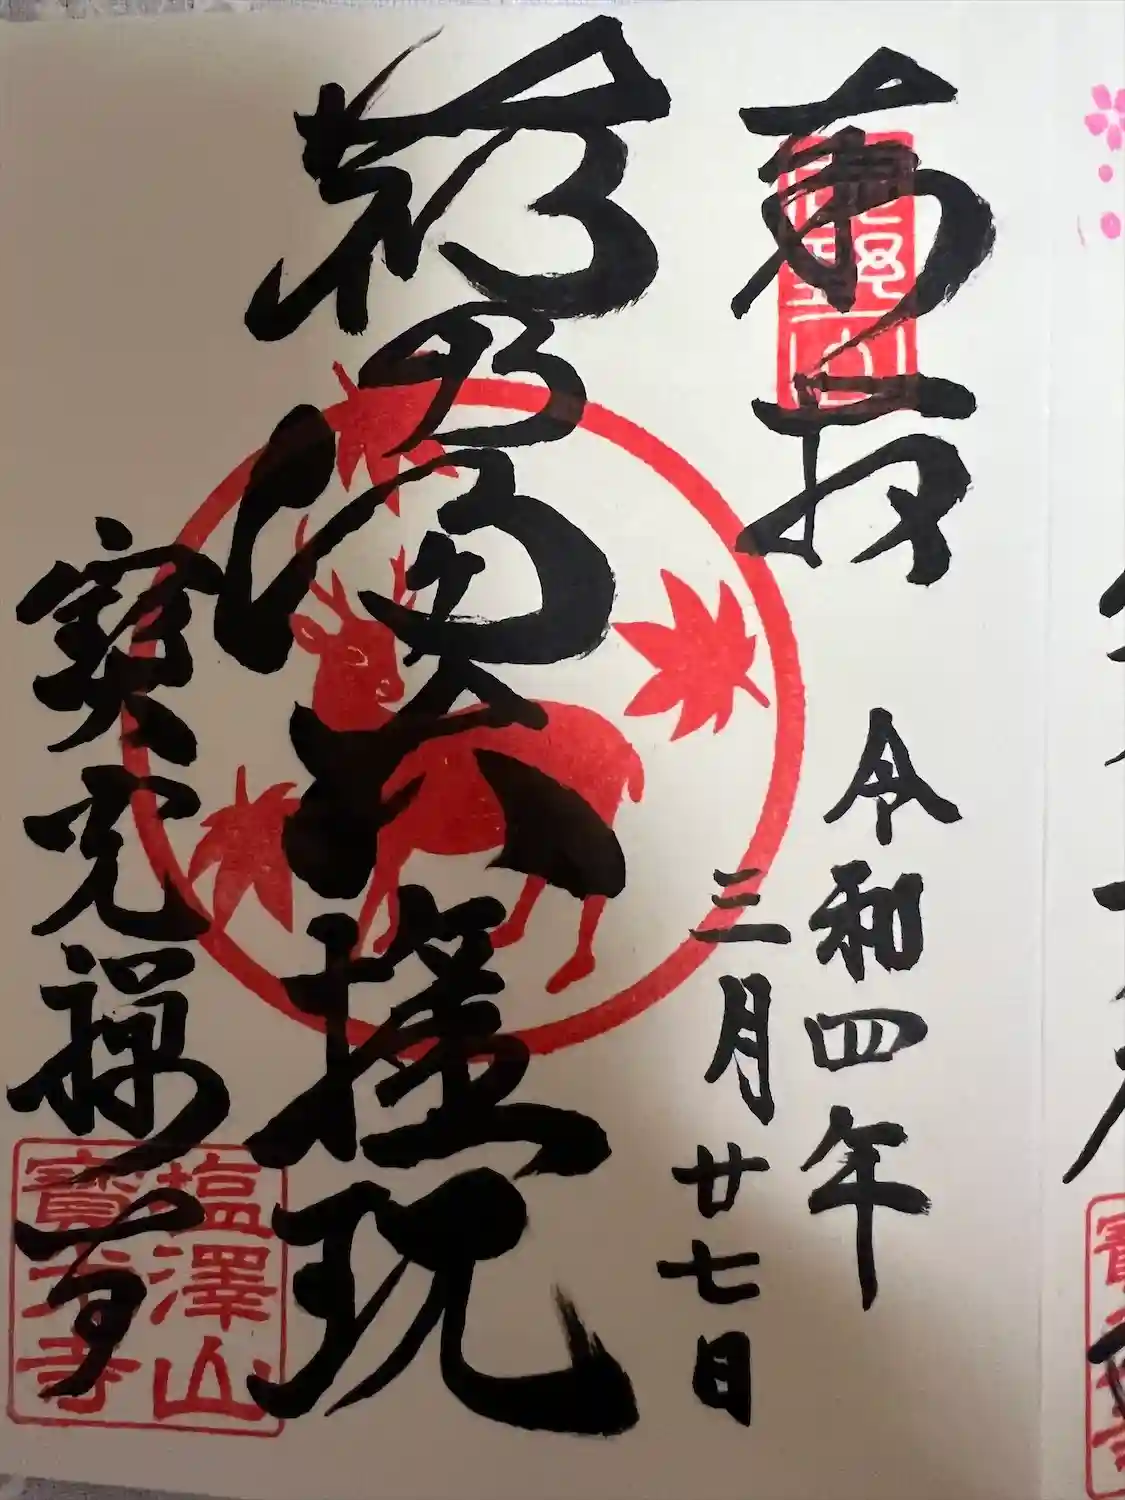 奉拝
令和四年
三月廿七日
鹿乃湯大権現
寶光禅寺
塩澤山
寶光寺